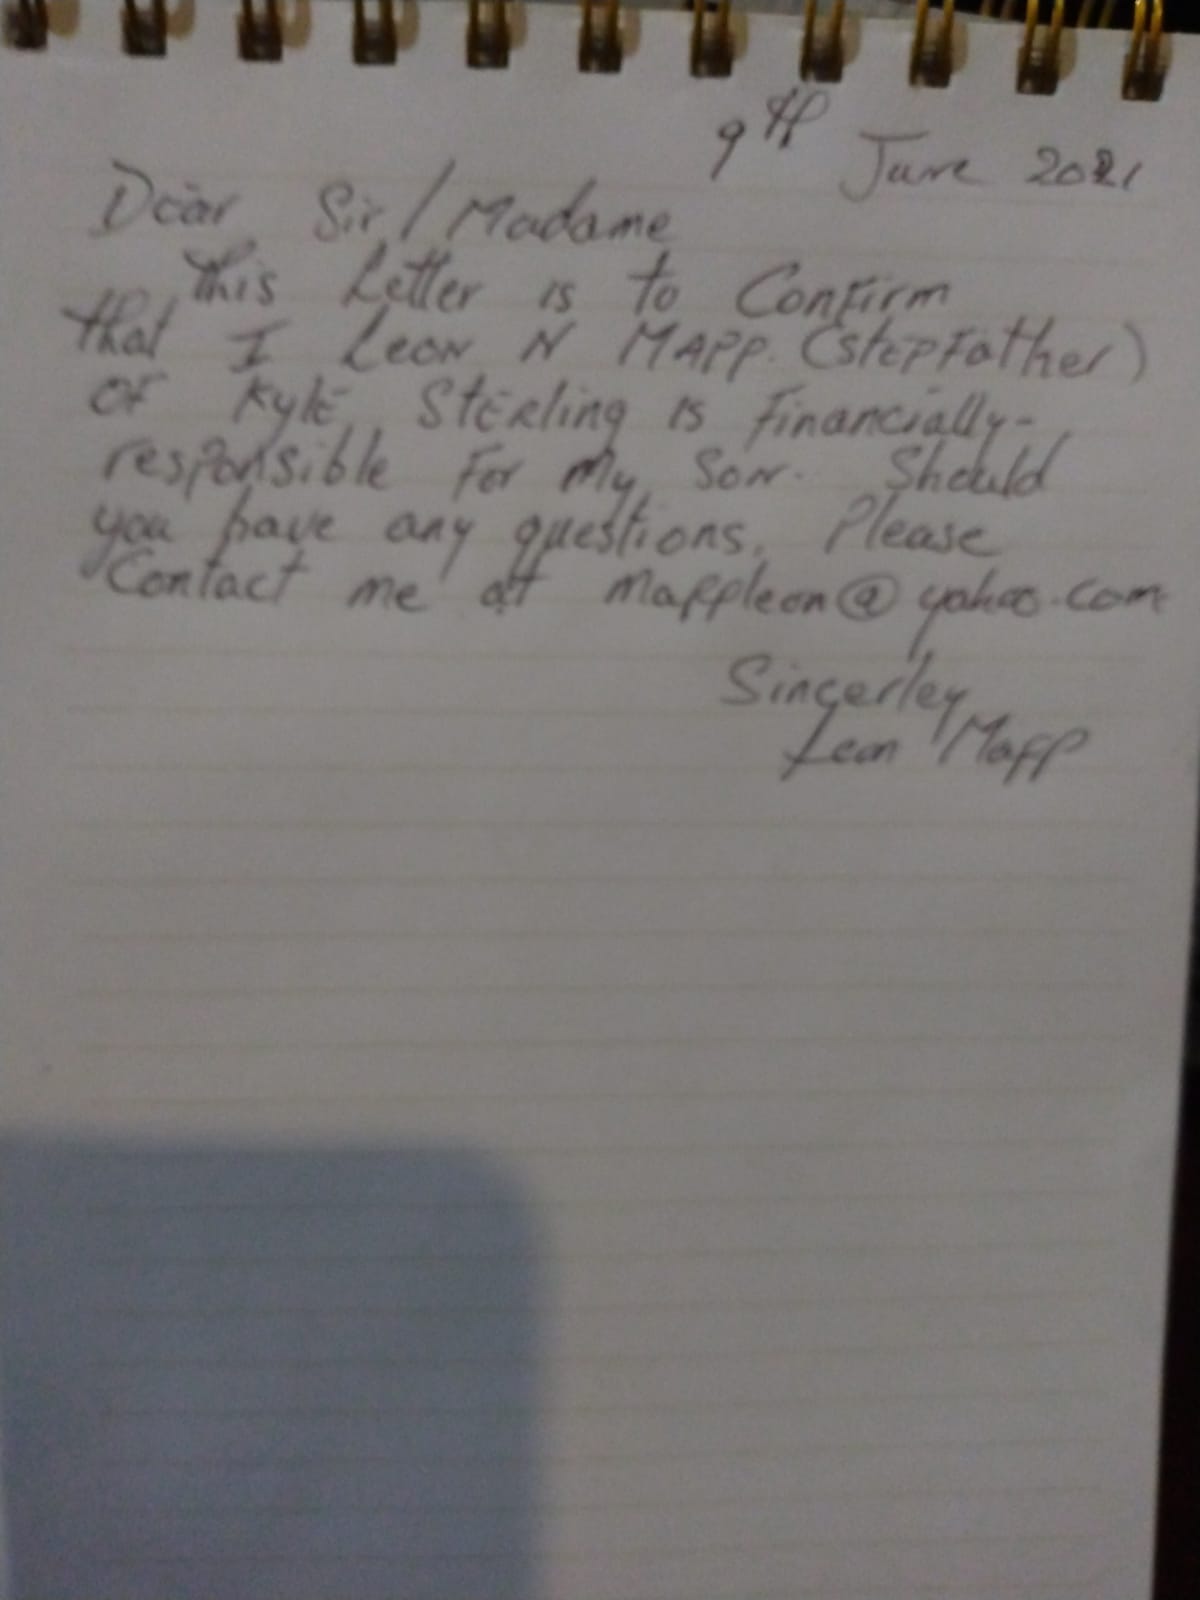 9th June 2021
Dear Sir/Madame
This Letter is to Confirm
that I Leon N MAPP. (stepfather)
of Kyle Sterling is financially-
responsible for my son. Should
you have any questions, Please
Contact me at mappleon@yahoo.com
Sincerley
Leon Mapp